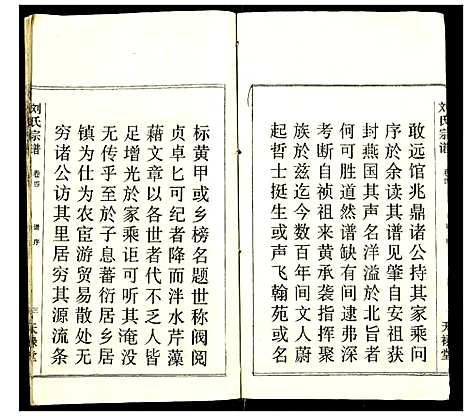 刘氏宗谱
敢远馆兆鼎诸公持其家乘问
序於余读其谱见肇自安祖获
封燕国其声名洋溢於北旨其
何可胜道然谱缺有间逮弗深
考断自祯祖来黄承袭指挥聚
族於兹迄今数百年间文人蔚
起哲士挺生或声飞翰苑或名
天禄堂
标黄甲或乡榜名题世称阀阅
贞卓匕可纪者降而泮水芹藻
藉文章以各世者代不乏人皆
足增光於家乘讵可听其淹没
无传乎至於子息蕃衍居乡居
镇为仕为农宦游贸易散处无
穷诸公访其里居穷其源流条
刘氏宗谱
卷四
谱序
天禄堂